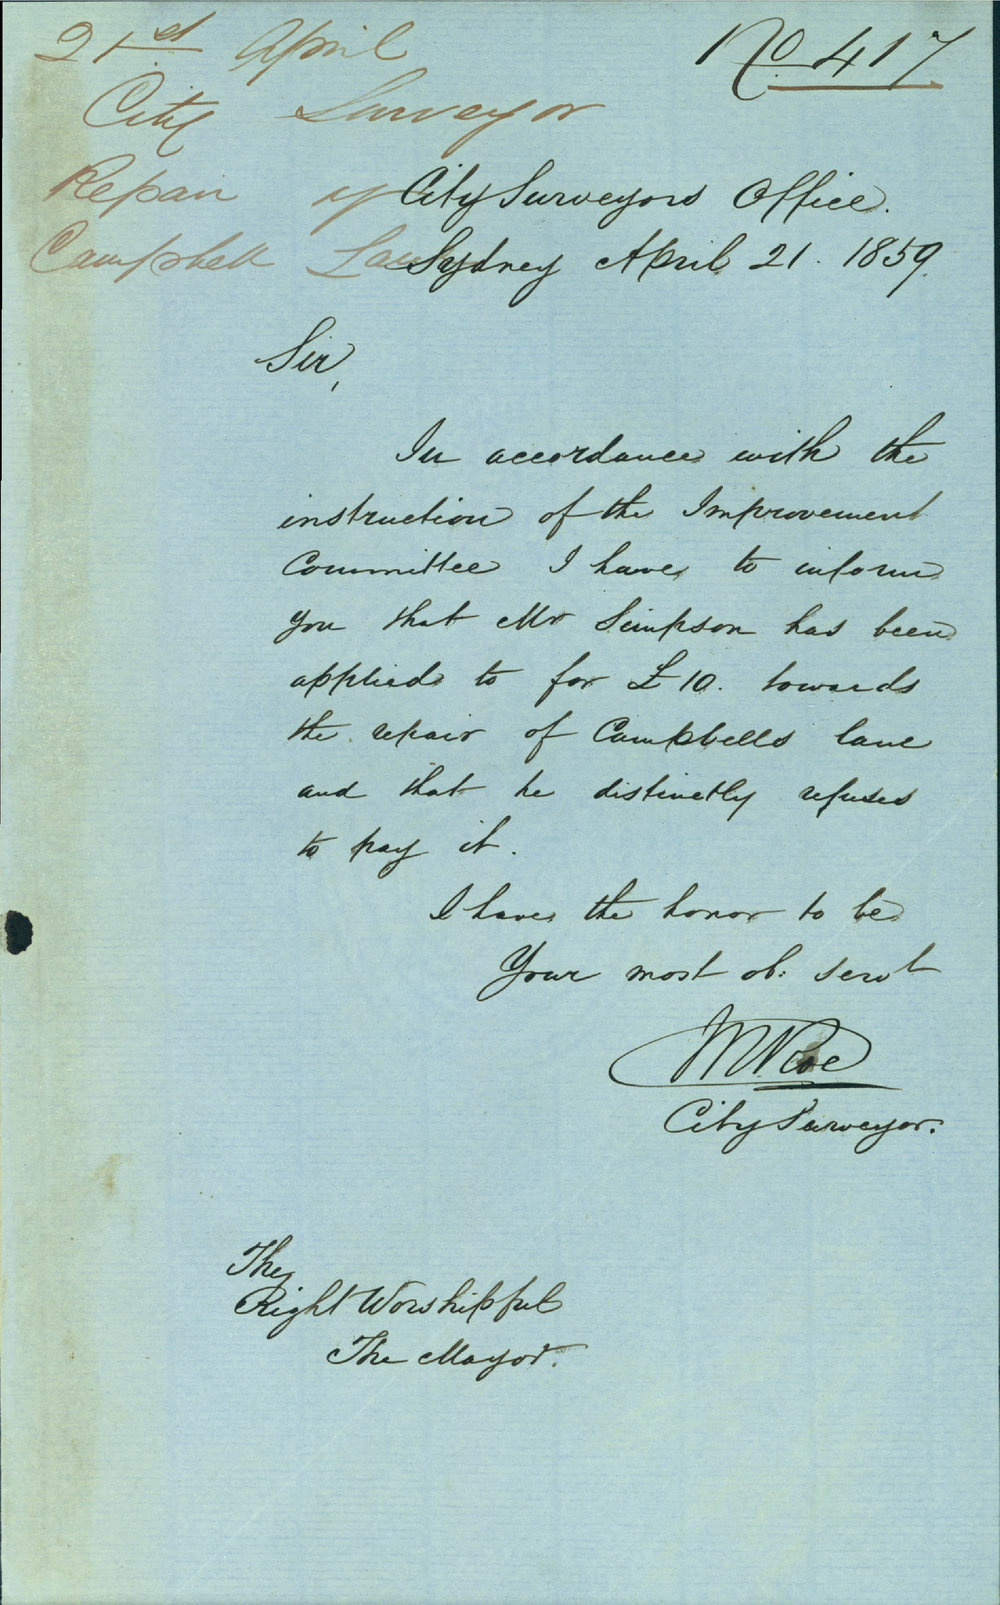 21st April
City Surveyor
Repair of
Campbell Lane
No. 417
City Surveyors Office.
Sydney April 21. 1859.
Sir,
In accordance with the
instruction of the Improvement
Committee I have to inform
you that Mr Simpson has been
applied to for £10. towards
the repair of Campbells lane
and that he distinctly refuses
to pay it.
I have the honor to be
Your most ob: servt
City Surveyor.
The
Right Worshipful
The Mayor.